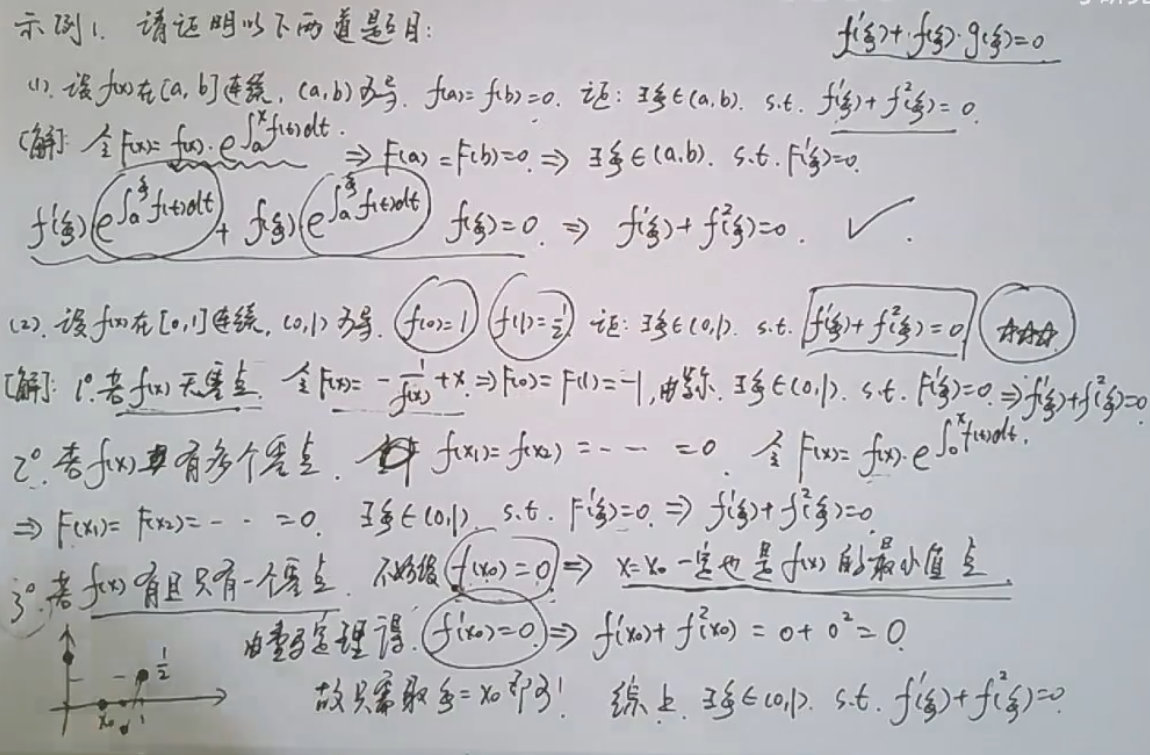 示例1. 请证明以下两道题目:
f'(ξ)+f(ξ)·g(ξ)=0
(1). 设f(x)在[a,b]连续, (a,b)可导. f(a)=f(b)=0. 证: ∃ξ∈(a,b). s.t. f'(ξ)+f²(ξ)=0.
[解]: 令F(x)=f(x)·e^{∫_a^x f(t)dt}. ⇒ F(a)=F(b)=0. ⇒ ∃ξ∈(a,b). s.t. F'(ξ)=0.
f'(ξ) e^{∫_a^ξ f(t)dt} + f(ξ) e^{∫_a^ξ f(t)dt} f(ξ)=0. ⇒ f'(ξ)+f²(ξ)=0. ✓.
(2). 设f(x)在[0,1]连续, (0,1)可导. f(0)=1 f(1)=1/2. 证: ∃ξ∈(0,1). s.t. f'(ξ)+f²(ξ)=0 ☆☆☆
[解]: 1°. 若f(x)无零点. 令F(x)=-1/f(x)+x. ⇒ F(0)=F(1)=-1, 由罗尔. ∃ξ∈(0,1). s.t. F'(ξ)=0. ⇒ f'(ξ)+f²(ξ)=0.
2°. 若f(x)有多个零点. f(x₁)=f(x₂)=-- --=0. 令F(x)=f(x)·e^{∫_0^x f(t)dt}.
⇒ F(x₁)=F(x₂)=-- --=0. ∃ξ∈(0,1). s.t. F'(ξ)=0. ⇒ f'(ξ)+f²(ξ)=0.
3°. 若f(x)有且只有一个零点. 不妨设f(x₀)=0 ⇒ x=x₀一定也是f(x)的最小值点.
由费马定理得. f'(x₀)=0 ⇒ f'(x₀)+f²(x₀)=0+0²=0.
1/2
x₀ 1
故只需取ξ=x₀即可! 综上. ∃ξ∈(0,1). s.t. f'(ξ)+f²(ξ)=0.